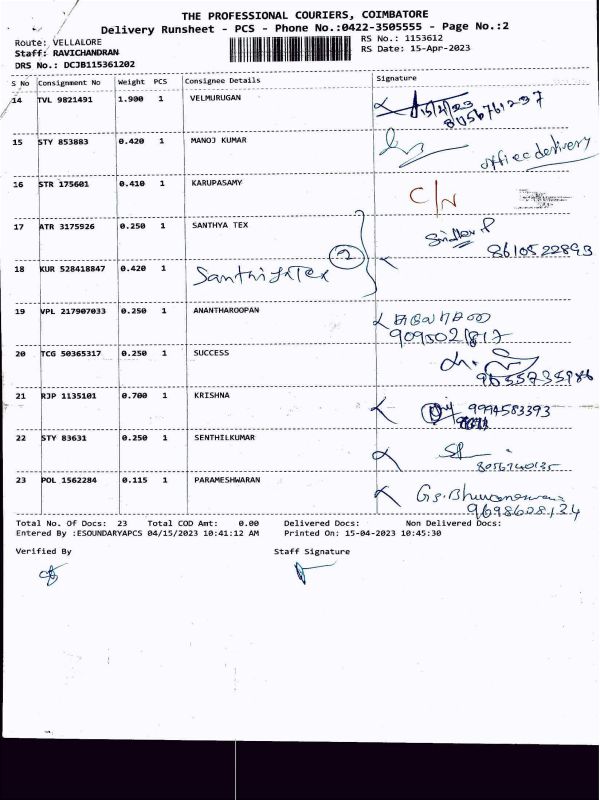 THE PROFESSIONAL COURIERS, COIMBATORE
Delivery Runsheet - PCS - Phone No.:0422-3505555 - Page No.:2
Route: VELLALORE
RS No.: 1153612
Staff: RAVICHANDRAN
RS Date: 15-Apr-2023
DRS No.: DCJB115361202
S No Consignment No Weight PCS Consignee Details Signature
14 TVL 9821491 1.900 1 VELMURUGAN 15/4/23
8056761237
15 STY 853883 0.420 1 MANOJ KUMAR office delivery
16 STR 175601 0.410 1 KARUPASAMY C/N
17 ATR 3175926 0.250 1 SANTHYA TEX
8610522893
18 KUR 528418847 0.420 1 Santhiya Tex 2
19 VPL 217907033 0.250 1 ANANTHAROOPAN
9095021817
20 TCG 50365317 0.250 1 SUCCESS
9655735986
21 RJP 1135101 0.700 1 KRISHNA 9994583393
22 STY 83631 0.250 1 SENTHILKUMAR
8056740135
23 POL 1562284 0.115 1 PARAMESHWARAN Gs.Bhuvaneswari
9698608134
Total No. Of Docs: 23 Total COD Amt: 0.00 Delivered Docs: Non Delivered Docs:
Entered By :ESOUNDARYAPCS 04/15/2023 10:41:12 AM Printed On: 15-04-2023 10:45:30
Verified By Staff Signature